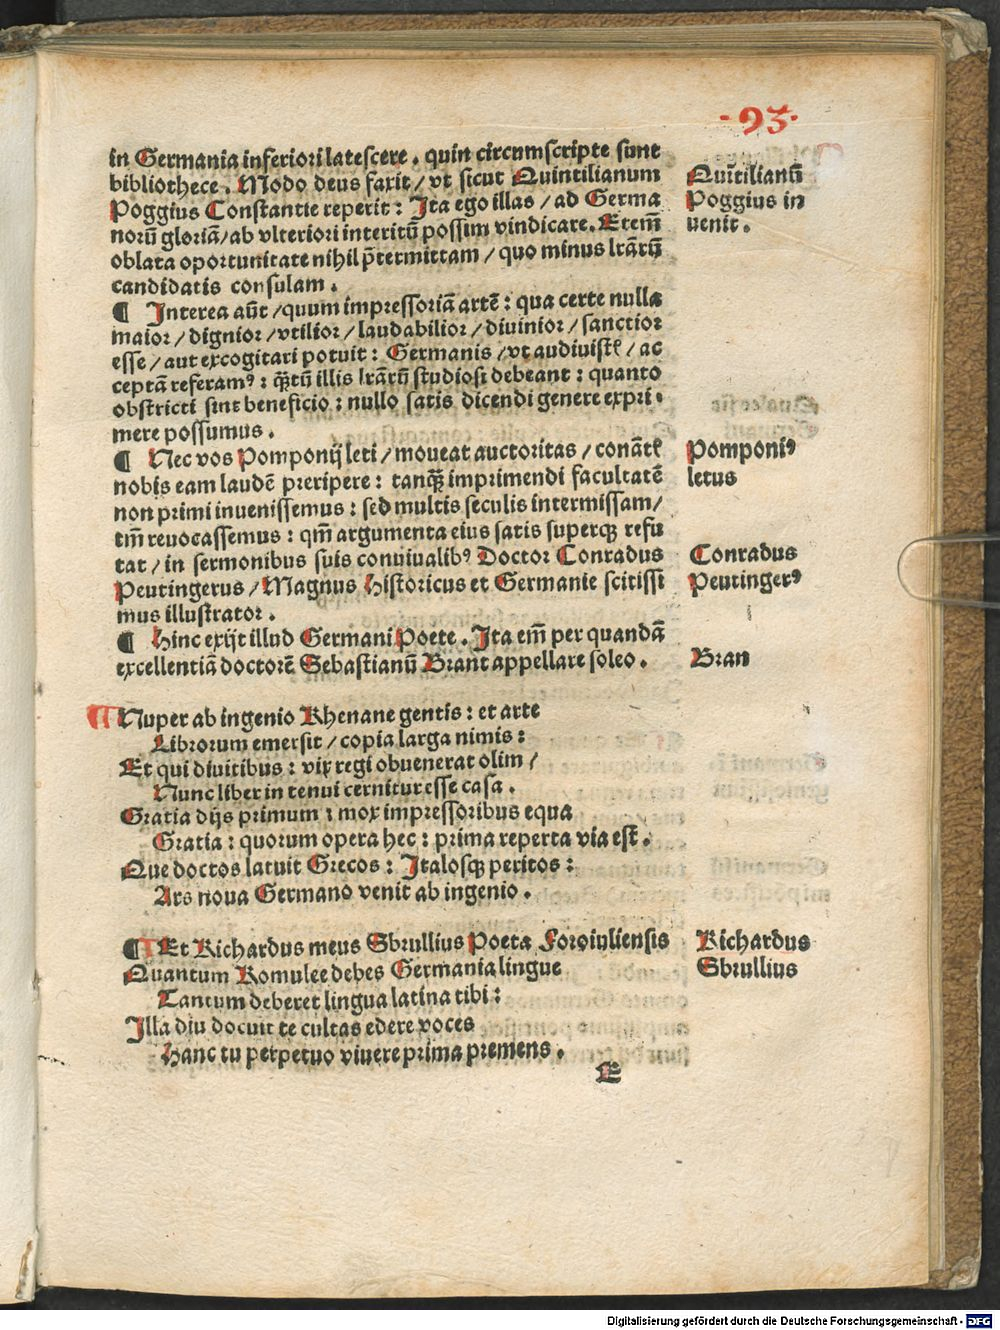 ·93·
in Germania inferiori latescere. quin circumscripte sunt
bibliothece. Modo deus faxit/ vt sicut Quintilianum
Poggius Constantie reperit: Ita ego illas/ ad Germa
norū gloriā/ ab vlteriori interitū possim vindicare. Etem̄
oblata oportunitate nihil p̄termittam/ quo minus lr̄arū
candidatis consulam.
Quītilianū
Poggius in
uenit.
¶ Interea aūt/ quum impressoriā artē: qua certe nulla
maior/ dignior/ vtilior/ laudabilior/ diuinior/ sanctior
esse/ aut excogitari potuit: Germanis/ vt audiuistꝭ/ ac
ceptā referamꝰ: qꝫtū illis lr̄arū studiosi debeant: quanto
obstricti sint beneficio: nullo satis dicendi genere expri-
mere possumus.
¶ Nec vos Pomponij leti/ moueat auctoritas/ conātꝭ
nobis eam laudē preripere: tanqꝫ imprimendi facultatē
non primi inuenissemus: sed multis seculis intermissam/
tm̄ reuocassemus: qm̄ argumenta eius satis superqꝫ refu
tat/ in sermonibus suis conuiualibꝰ Doctor Conradus
Peutingerus/ Magnus Historicus et Germanie scitissi
mus illustrator.
Pomponiꝰ
letus
Conradus
Peutingerꝰ
¶ Hinc exijt illud Germani Poete. Ita em̄ per quandā
excellentiā doctorē Sebastianū Brant appellare soleo.
Bran
¶ Nuper ab ingenio Rhenane gentis: et arte
Librorum emersit/ copia larga nimis:
Et qui diuitibus: vix regi obuenerat olim/
Nunc liber in tenui cernitur esse casa.
Gratia dijs primum: mox impressoribus equa
Gratia: quorum opera hec: prima reperta via est.
Que doctos latuit Grecos: Italosqꝫ peritos:
Ars noua Germano venit ab ingenio.
¶ Et Richardus meus Sbrullius Poeta Foroiuliensis
Richardus
Sbrullius
Quantum Romulee debes Germania lingue
Tantum deberet lingua latina tibi:
Illa diu docuit te cultas edere voces
Hanc tu perpetuo viuere prima premens.
E
Digitalisierung gefördert durch die Deutsche Forschungsgemeinschaft - DFG